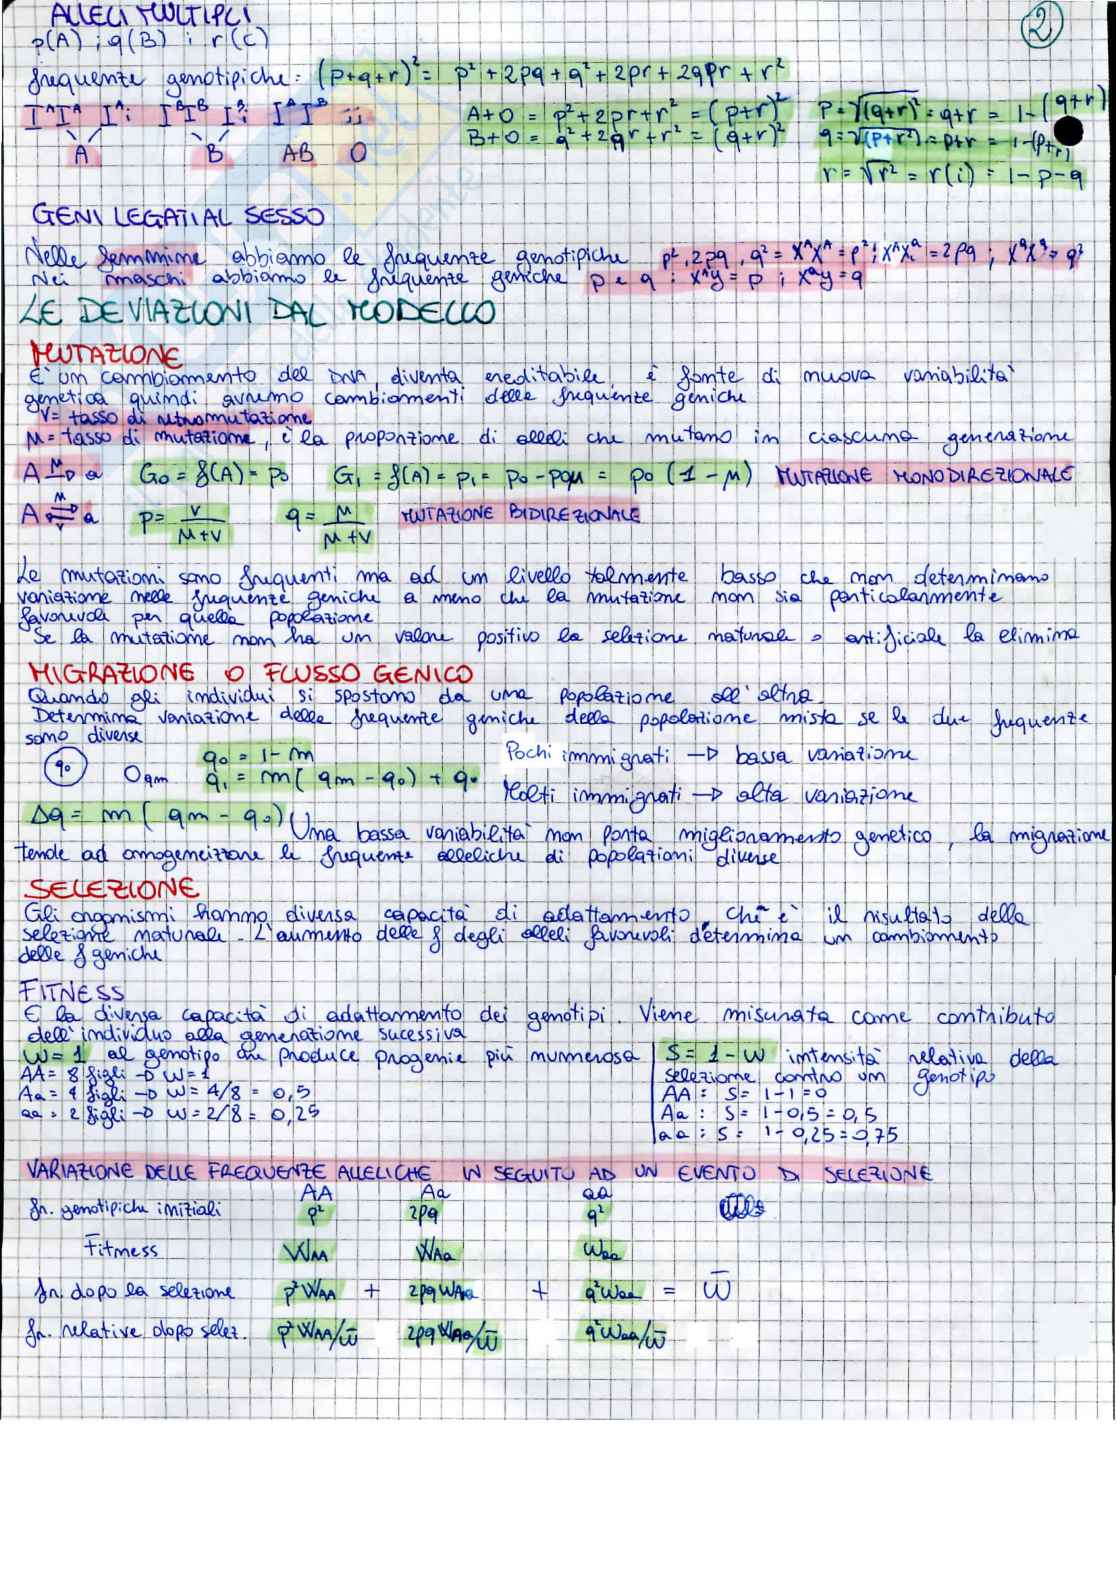 ALLELI MULTIPLI
2
p(A) ; q(B) ; r(C)
frequenze genotipiche: (p+q+r)² = p² + 2pq + q² + 2pr + 2qpr + r²
I^A I^A I^A i I^B I^B I^B i I^A I^B ii
A B AB O
A+O = p² + 2pr + r² = (p+r)²
B+O = q² + 2qr + r² = (q+r)²
p = √(q+r)² = q+r = 1-(q+r)
q = √(p+r²) = p+r = 1-(p+r)
r = √r² = r(i) = 1-p-q
GENI LEGATI AL SESSO
Nelle femmine abbiamo le frequenze genotipiche p², 2pq, q² = X^A X^A = p² ; X^A X^a = 2pq ; X^a X^a = q²
Nei maschi abbiamo le frequenze geniche p e q : X^A y = p ; X^a y = q
LE DEVIAZIONI DAL MODELLO
MUTAZIONE
È un cambiamento del DNA, diventa ereditabile, è fonte di nuova variabilità
genetica quindi avremo cambiamenti delle frequenze geniche
V = tasso di retromutazione
μ = tasso di mutazione, è la proporzione di alleli che mutano in ciascuna generazione
A –μ→ a G₀ = f(A) = p₀ G₁ = f(A) = p₁ = p₀ - p₀μ = p₀ (1 - μ) MUTAZIONE MONODIREZIONALE
A μ⇌v a p = v/μ+v q = μ/μ+v MUTAZIONE BIDIREZIONALE
Le mutazioni sono frequenti ma ad un livello talmente basso che non determinano
variazione nelle frequenze geniche a meno che la mutazione non sia particolarmente
favorevole per quella popolazione
Se la mutazione non ha un valore positivo la selezione naturale o artificiale la elimina
MIGRAZIONE O FLUSSO GENICO
Quando gli individui si spostano da una popolazione all'altra.
Determina variazione delle frequenze geniche della popolazione mista se le due frequenze
sono diverse
q₀ O qm q₀ = 1 - m
q₁ = m( qm - q₀) + q₀
Pochi immigrati → bassa variazione
Molti immigrati → alta variazione
Δq = m ( qm - q₀) Una bassa variabilità non porta miglioramento genetico, la migrazione
tende ad omogeneizzare le frequenze alleliche di popolazioni diverse
SELEZIONE
Gli organismi hanno diversa capacità di adattamento, chi è il risultato della
selezione naturale. L'aumento delle f degli alleli favorevoli determina un cambiamento
delle f geniche
FITNESS
È la diversa capacità di adattamento dei genotipi. Viene misurata come contributo
dell'individuo alla generazione sucessiva
W = 1 al genotipo che produce progenie più numerosa
AA = 8 figli → W = 1
Aa = 4 figli → W = 4/8 = 0,5
aa = 2 figli → W = 2/8 = 0,25
S = 1 - W intensità relativa della
selezione contro un genotipo
AA : S = 1-1 = 0
Aa : S = 1-0,5 = 0,5
aa : S = 1-0,25 = 0,75
VARIAZIONE DELLE FREQUENZE ALLELICHE IN SEGUITO AD UN EVENTO DI SELEZIONE
AA Aa aa
fr. genotipiche iniziali p² 2pq q²
Fitness WAA WAa Waa
fr. dopo la selezione p²WAA + 2pqWAa + q²Waa = W̄
fr. relative dopo selez. p²WAA/w̄ 2pqWAa/w̄ q²Waa/w̄